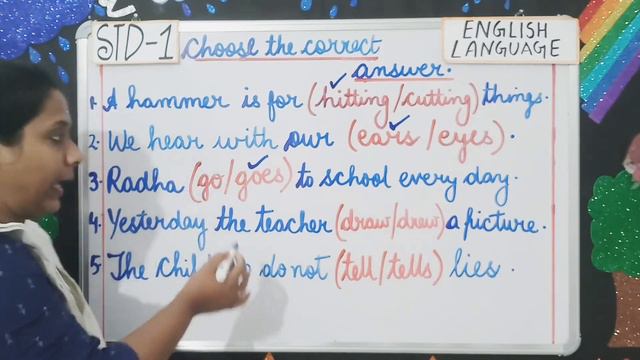 STD-1 Choose the correct answer.
ENGLISH LANGUAGE
1. A hammer is for (hitting/cutting) things.
2. We hear with our (ears/eyes).
3. Radha (go/goes) to school every day.
4. Yesterday the teacher (draw/drew) a picture.
5. The do not (tell/tells) lies.